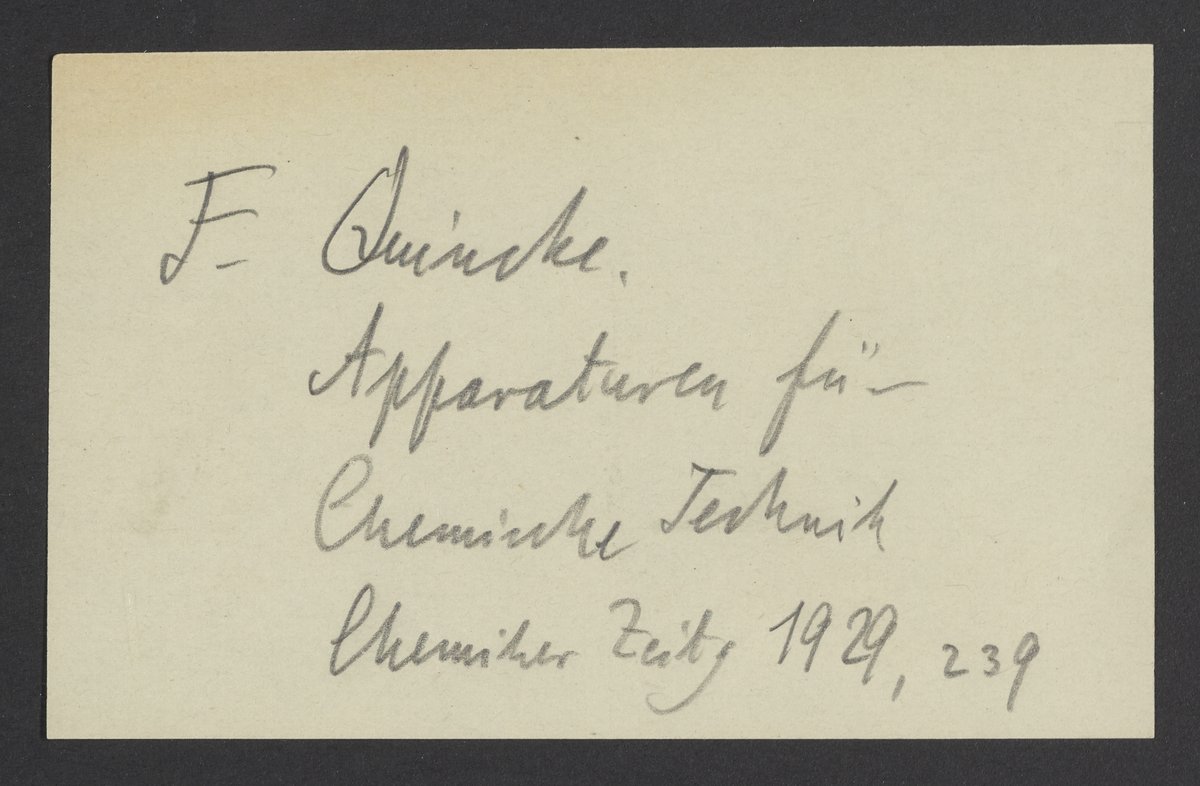 F. Quincke.
Apparaturen für
Chemische Technik
Chemiker Zeitg 1929, 239